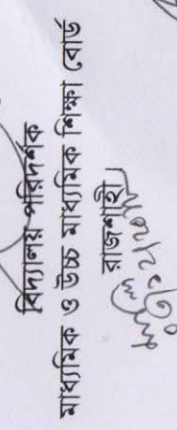 বিদ্যালয় পরিদর্শক
মাধ্যমিক ও উচ্চ মাধ্যমিক শিক্ষা বোর্ড
রাজশাহী